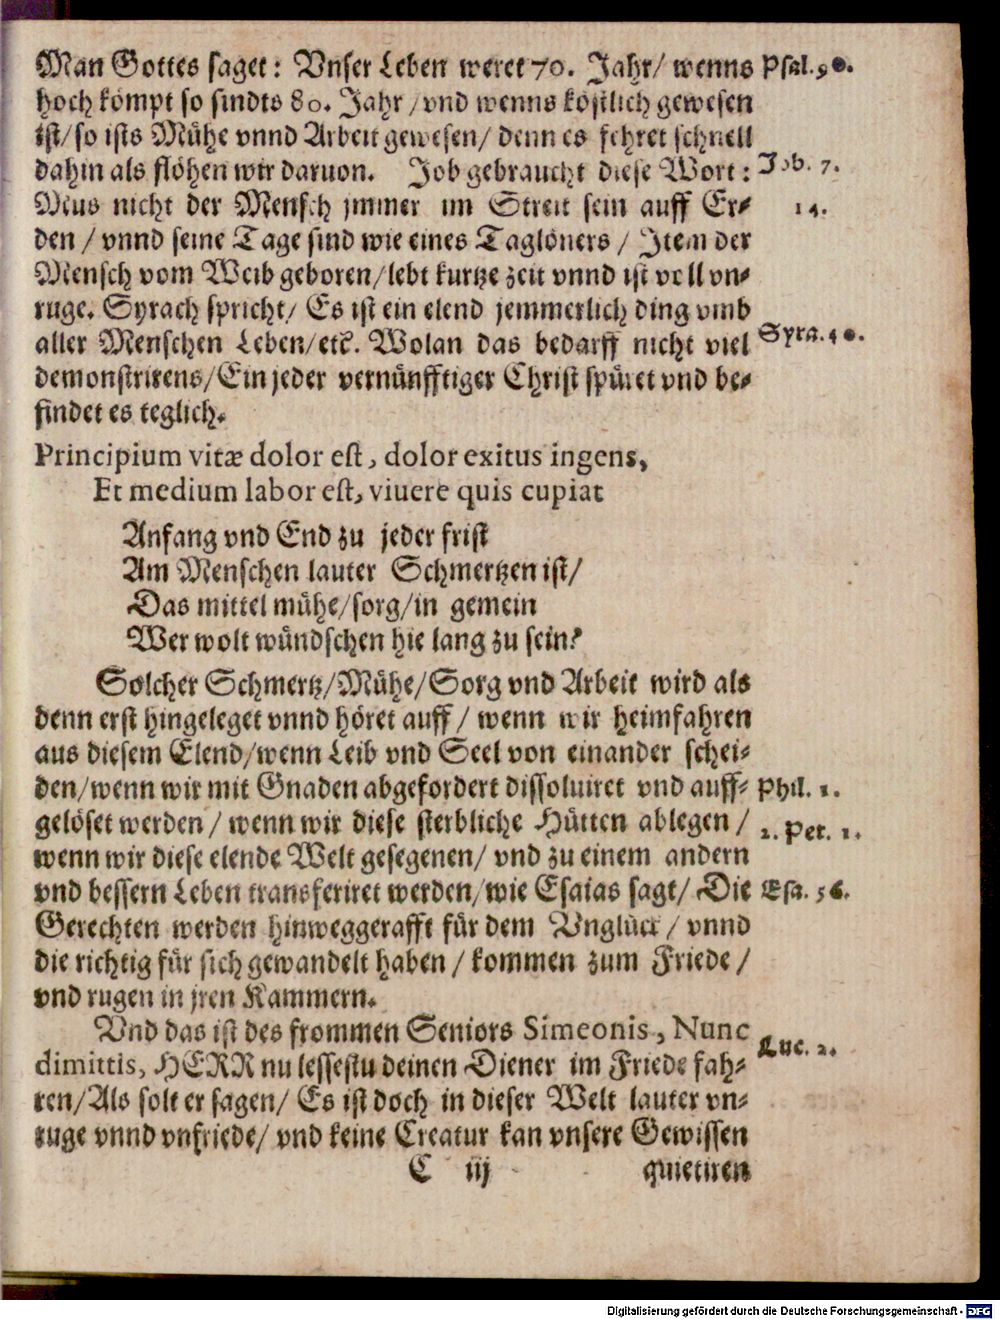 Man Gottes saget: Vnser Leben weret 70. Jahr/ wenns Psal. 90.
hoch kömpt so sindts 80. Jahr/ vnd wenns köstlich gewesen
ist/ so ists Mühe vnnd Arbeit gewesen/ denn es fehret schnell
dahin als flöhen wir dauon. Job gebraucht diese Wort: Job. 7.
Mus nicht der Mensch jmmer im Streit sein auff Er- 14.
den / vnnd seine Tage sind wie eines Taglöners / Item der
Mensch vom Weib geboren/ lebt kurtze zeit vnnd ist voll vn-
ruge. Syrach spricht/ Es ist ein elend jemmerlich ding vmb
aller Menschen Leben/ etc. Wolan das bedarff nicht viel Syra. 40.
demonstrirens/ Ein jeder vernünfftiger Christ spüret vnd be-
findet es teglich.
Principium vitæ dolor est, dolor exitus ingens,
Et medium labor est, viuere quis cupiat
Anfang vnd End zu jeder frist
Am Menschen lauter Schmertzen ist/
Das mittel mühe/ sorg/ in gemein
Wer wolt wündschen hie lang zu sein?
Solcher Schmertz/ Mühe/ Sorg vnd Arbeit wird als
denn erst hingeleget vnnd höret auff / wenn wir heimfahren
aus diesem Elend/ wenn Leib vnd Seel von einander schei-
den/ wenn wir mit Gnaden abgefordert dissoluiret vnd auff- Phil. 1.
gelöset werden / wenn wir diese sterbliche Hütten ablegen / 2. Pet. 1.
wenn wir diese elende Welt gesegenen/ vnd zu einem andern
vnd bessern Leben transferiret werden/ wie Esaias sagt/ Die Esa. 56.
Gerechten werden hinweggerafft für dem Vnglück / vnnd
die richtig für sich gewandelt haben / kommen zum Friede /
vnd rugen in jren Kammern.
Vnd das ist des frommen Seniors Simeonis, Nunc
dimittis, HERR nu lessestu deinen Diener im Friede fah- Luc. 2.
ren/ Als solt er sagen/ Es ist doch in dieser Welt lauter vn-
ruge vnnd vnfriede/ vnd keine Creatur kan vnsere Gewissen
C iij quietiren
Digitalisierung gefördert durch die Deutsche Forschungsgemeinschaft - DFG